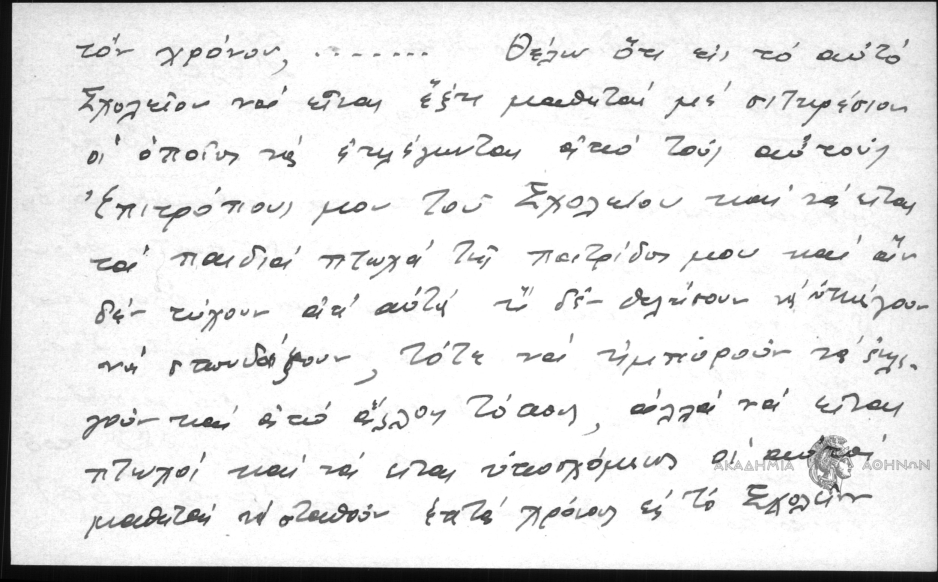 τόν χρόνον, ........ Θέλω ὅτι εἰς τό αὐτό
Σχολεῖον νά εἶναι ἕξι μαθηταί μέ σιτηρέσιον
οἱ ὁποῖοι νά ἐκλέγωνται ἀπό τούς αὐτούς
Ἐπιτρόπους μου τοῦ Σχολείου καί νά εἶναι
τά παιδιά πτωχά τῆς πατρίδος μου καί ἄν
δέν τύχουν ἀπό αὐτά ἤ δέν θελήσουν νά ὑπάγουν
νά σπουδάξουν, τότε νά ἠμποροῦν νά ἐκλε-
γοῦν καί ἀπό ἄλλον τόπον, ἀλλά νά εἶναι
πτωχοί καί νά εἶναι ὑπόσχόμενοι οἱ αὐτοί
μαθηταί νά σταθοῦν ἑπτά χρόνους εἰς τό Σχολεῖον
ΑΚΑΔΗΜΙΑ ΑΘΗΝΩΝ